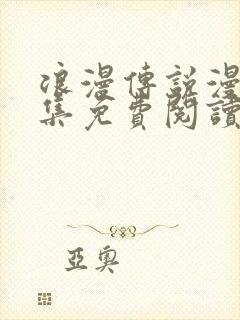 浪漫傳說漫
集免費閱讀
亞奧